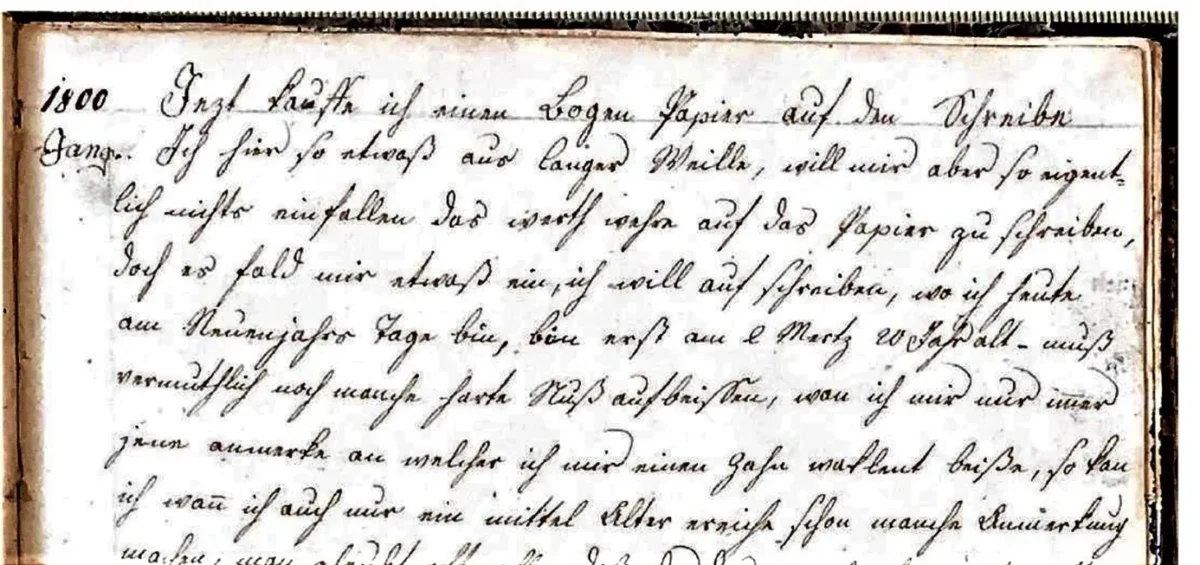 1800 Jezt kauffe ich einen Bogen Papier auf den Schreibe
Jang. Ich hier so etwaß aus langer Weille, will mir aber so eigent-
lich nichts einfallen das werth wehre auf das Papier zu schreiben,
doch es fald mir etwaß ein, ich will auf schreiben, wo ich heute
am Neuenjahrs Tage bin, bin erst am 2 Mertz 20 Jahr alt - muß
vermuthlich noch manche harte Nuß aufbeissen, wan ich mir nur imer
jene anmerke an welcher ich mir einen Zahn waklent beiße, so kan
ich wan̄ ich auch nur ein mittel Alter ereiche schon manche Anmerkung
machen, man glaubt